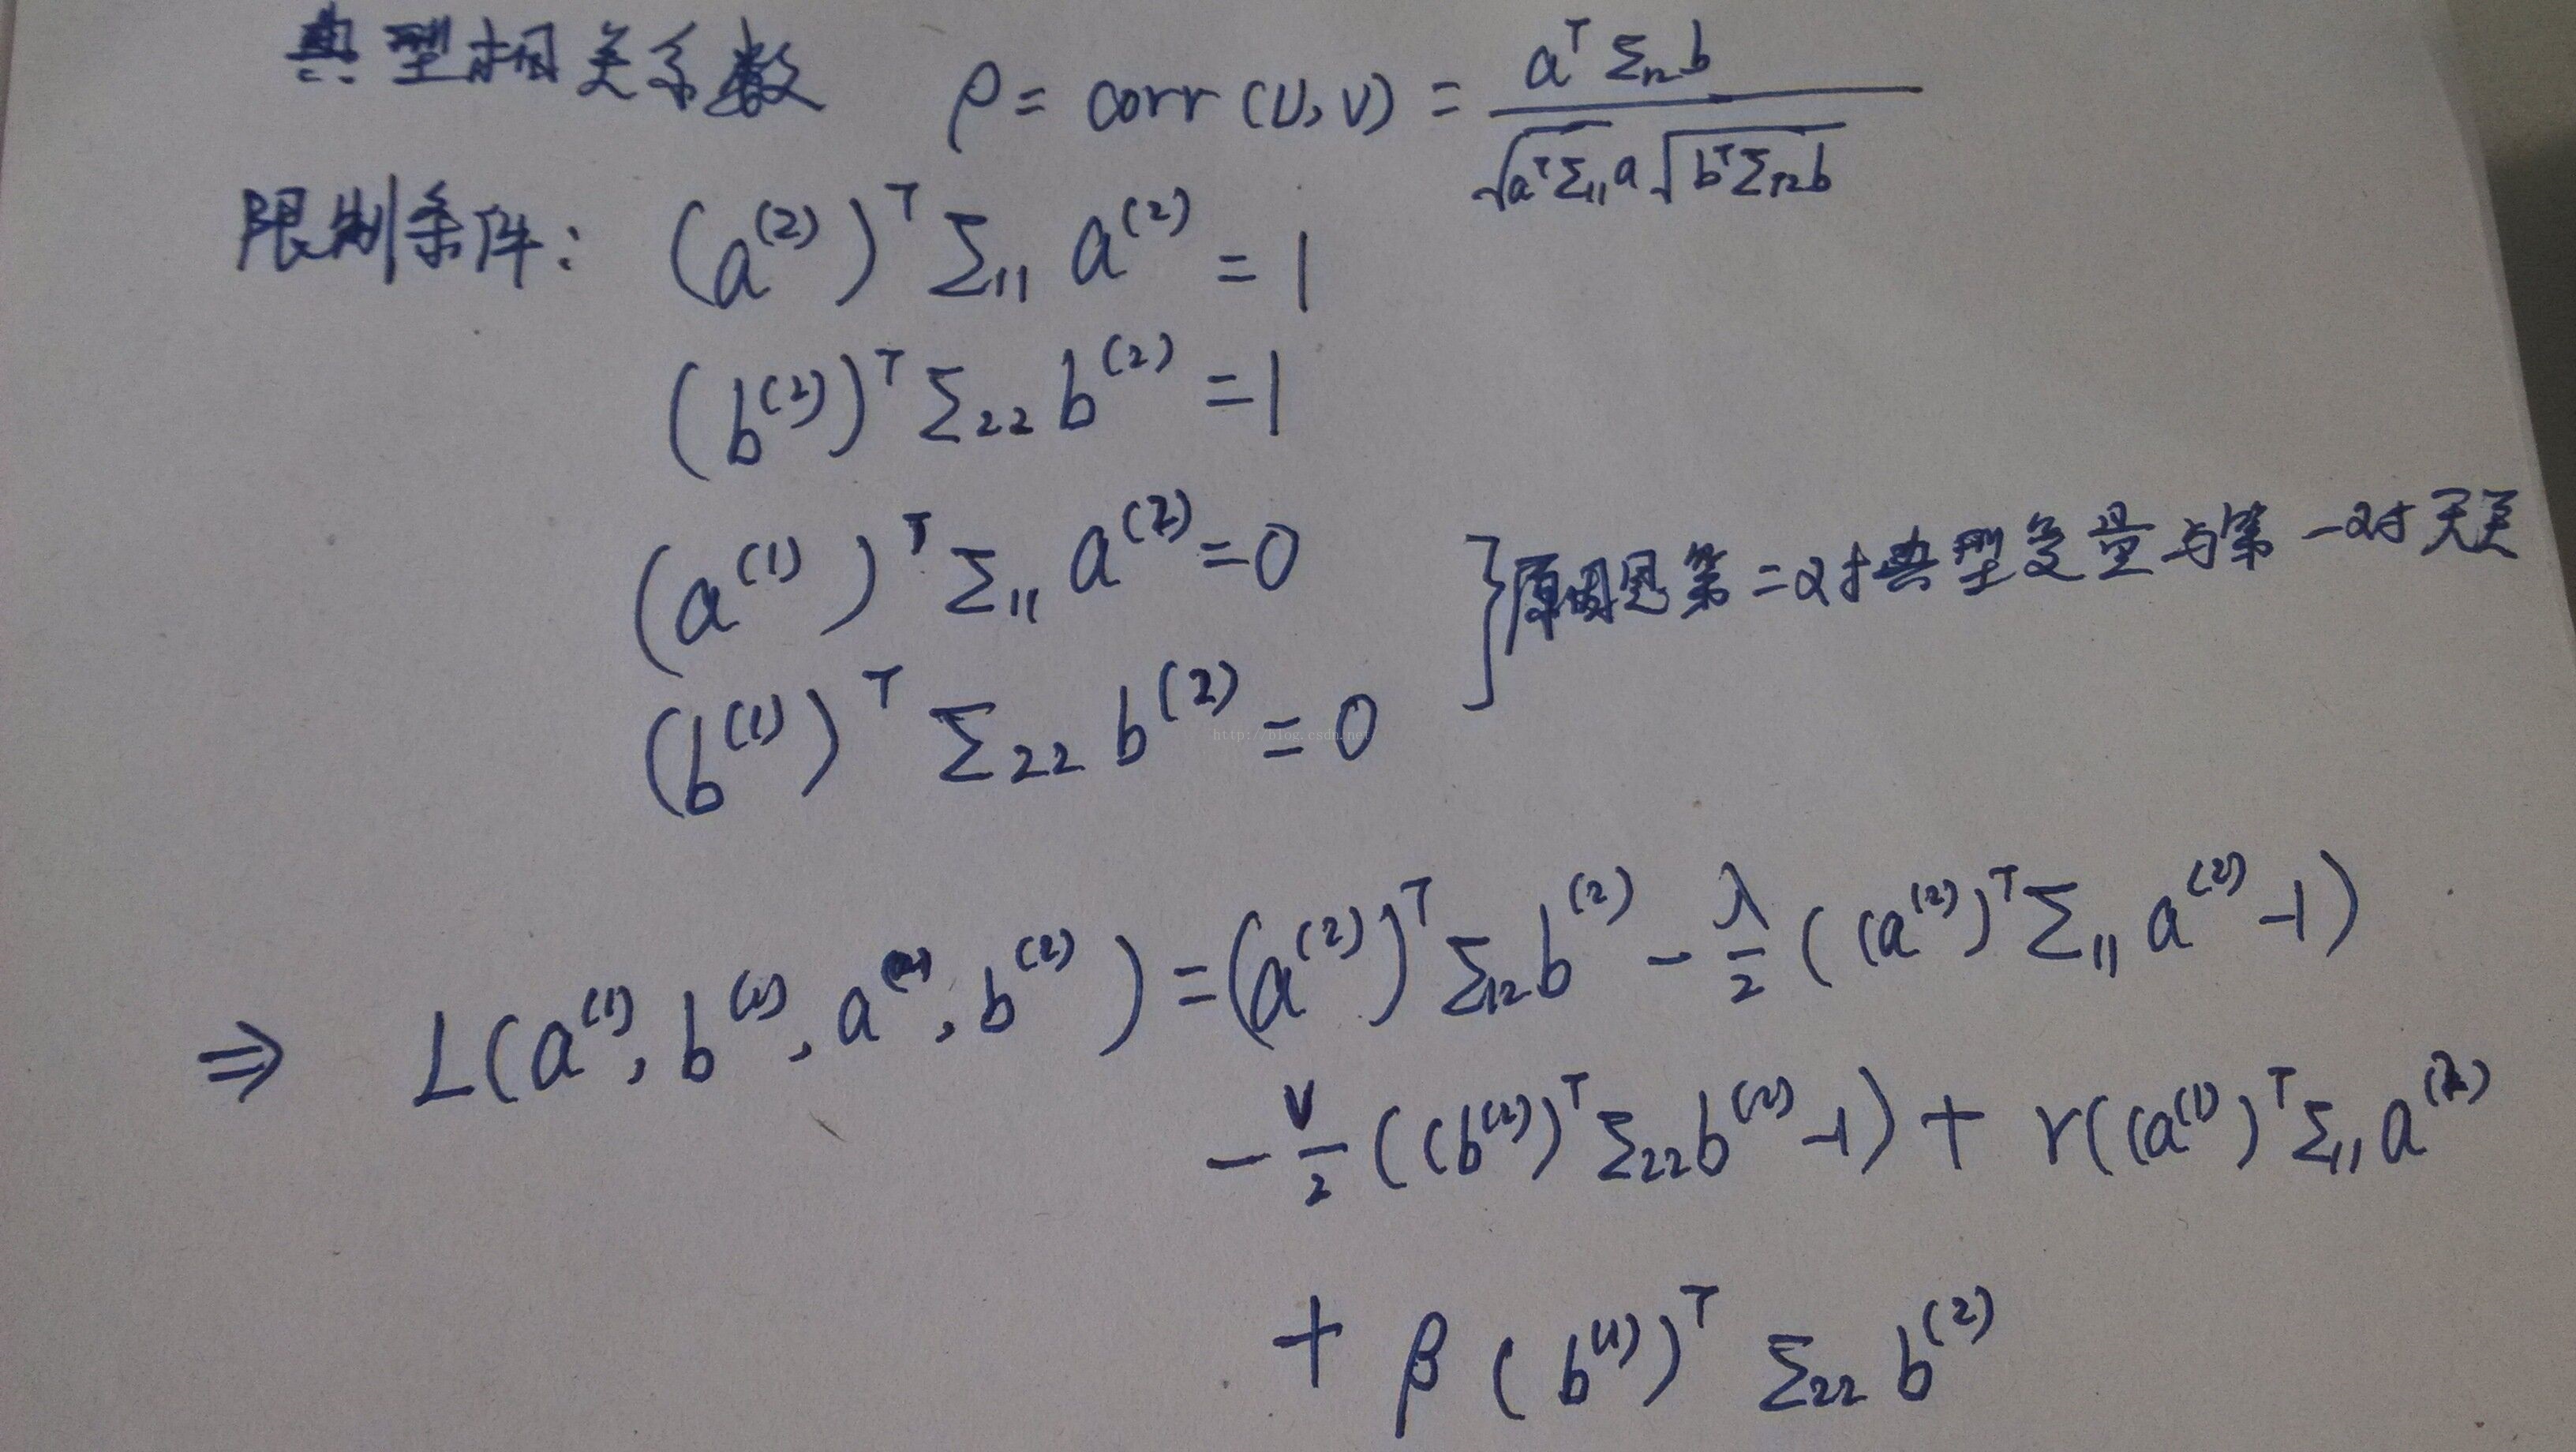 典型相关系数 ρ = corr(U,V) = a^T Σ₁₂ b / √(a^T Σ₁₁ a) √(b^T Σ₁₂ b)
限制条件: (a^(2))^T Σ₁₁ a^(2) = 1
(b^(2))^T Σ₂₂ b^(2) = 1
(a^(1))^T Σ₁₁ a^(2) = 0
}原因是第二对典型变量与第一对无关
(b^(1))^T Σ₂₂ b^(2) = 0
http://blog.csdn.net
⇒ L(a^(1), b^(1), a^(2), b^(2)) = (a^(2))^T Σ₁₂ b^(2) - λ/2 ((a^(2))^T Σ₁₁ a^(2) - 1)
- ν/2 ((b^(2))^T Σ₂₂ b^(2) - 1) + r((a^(1))^T Σ₁₁ a^(2)
+ β (b^(1))^T Σ₂₂ b^(2)